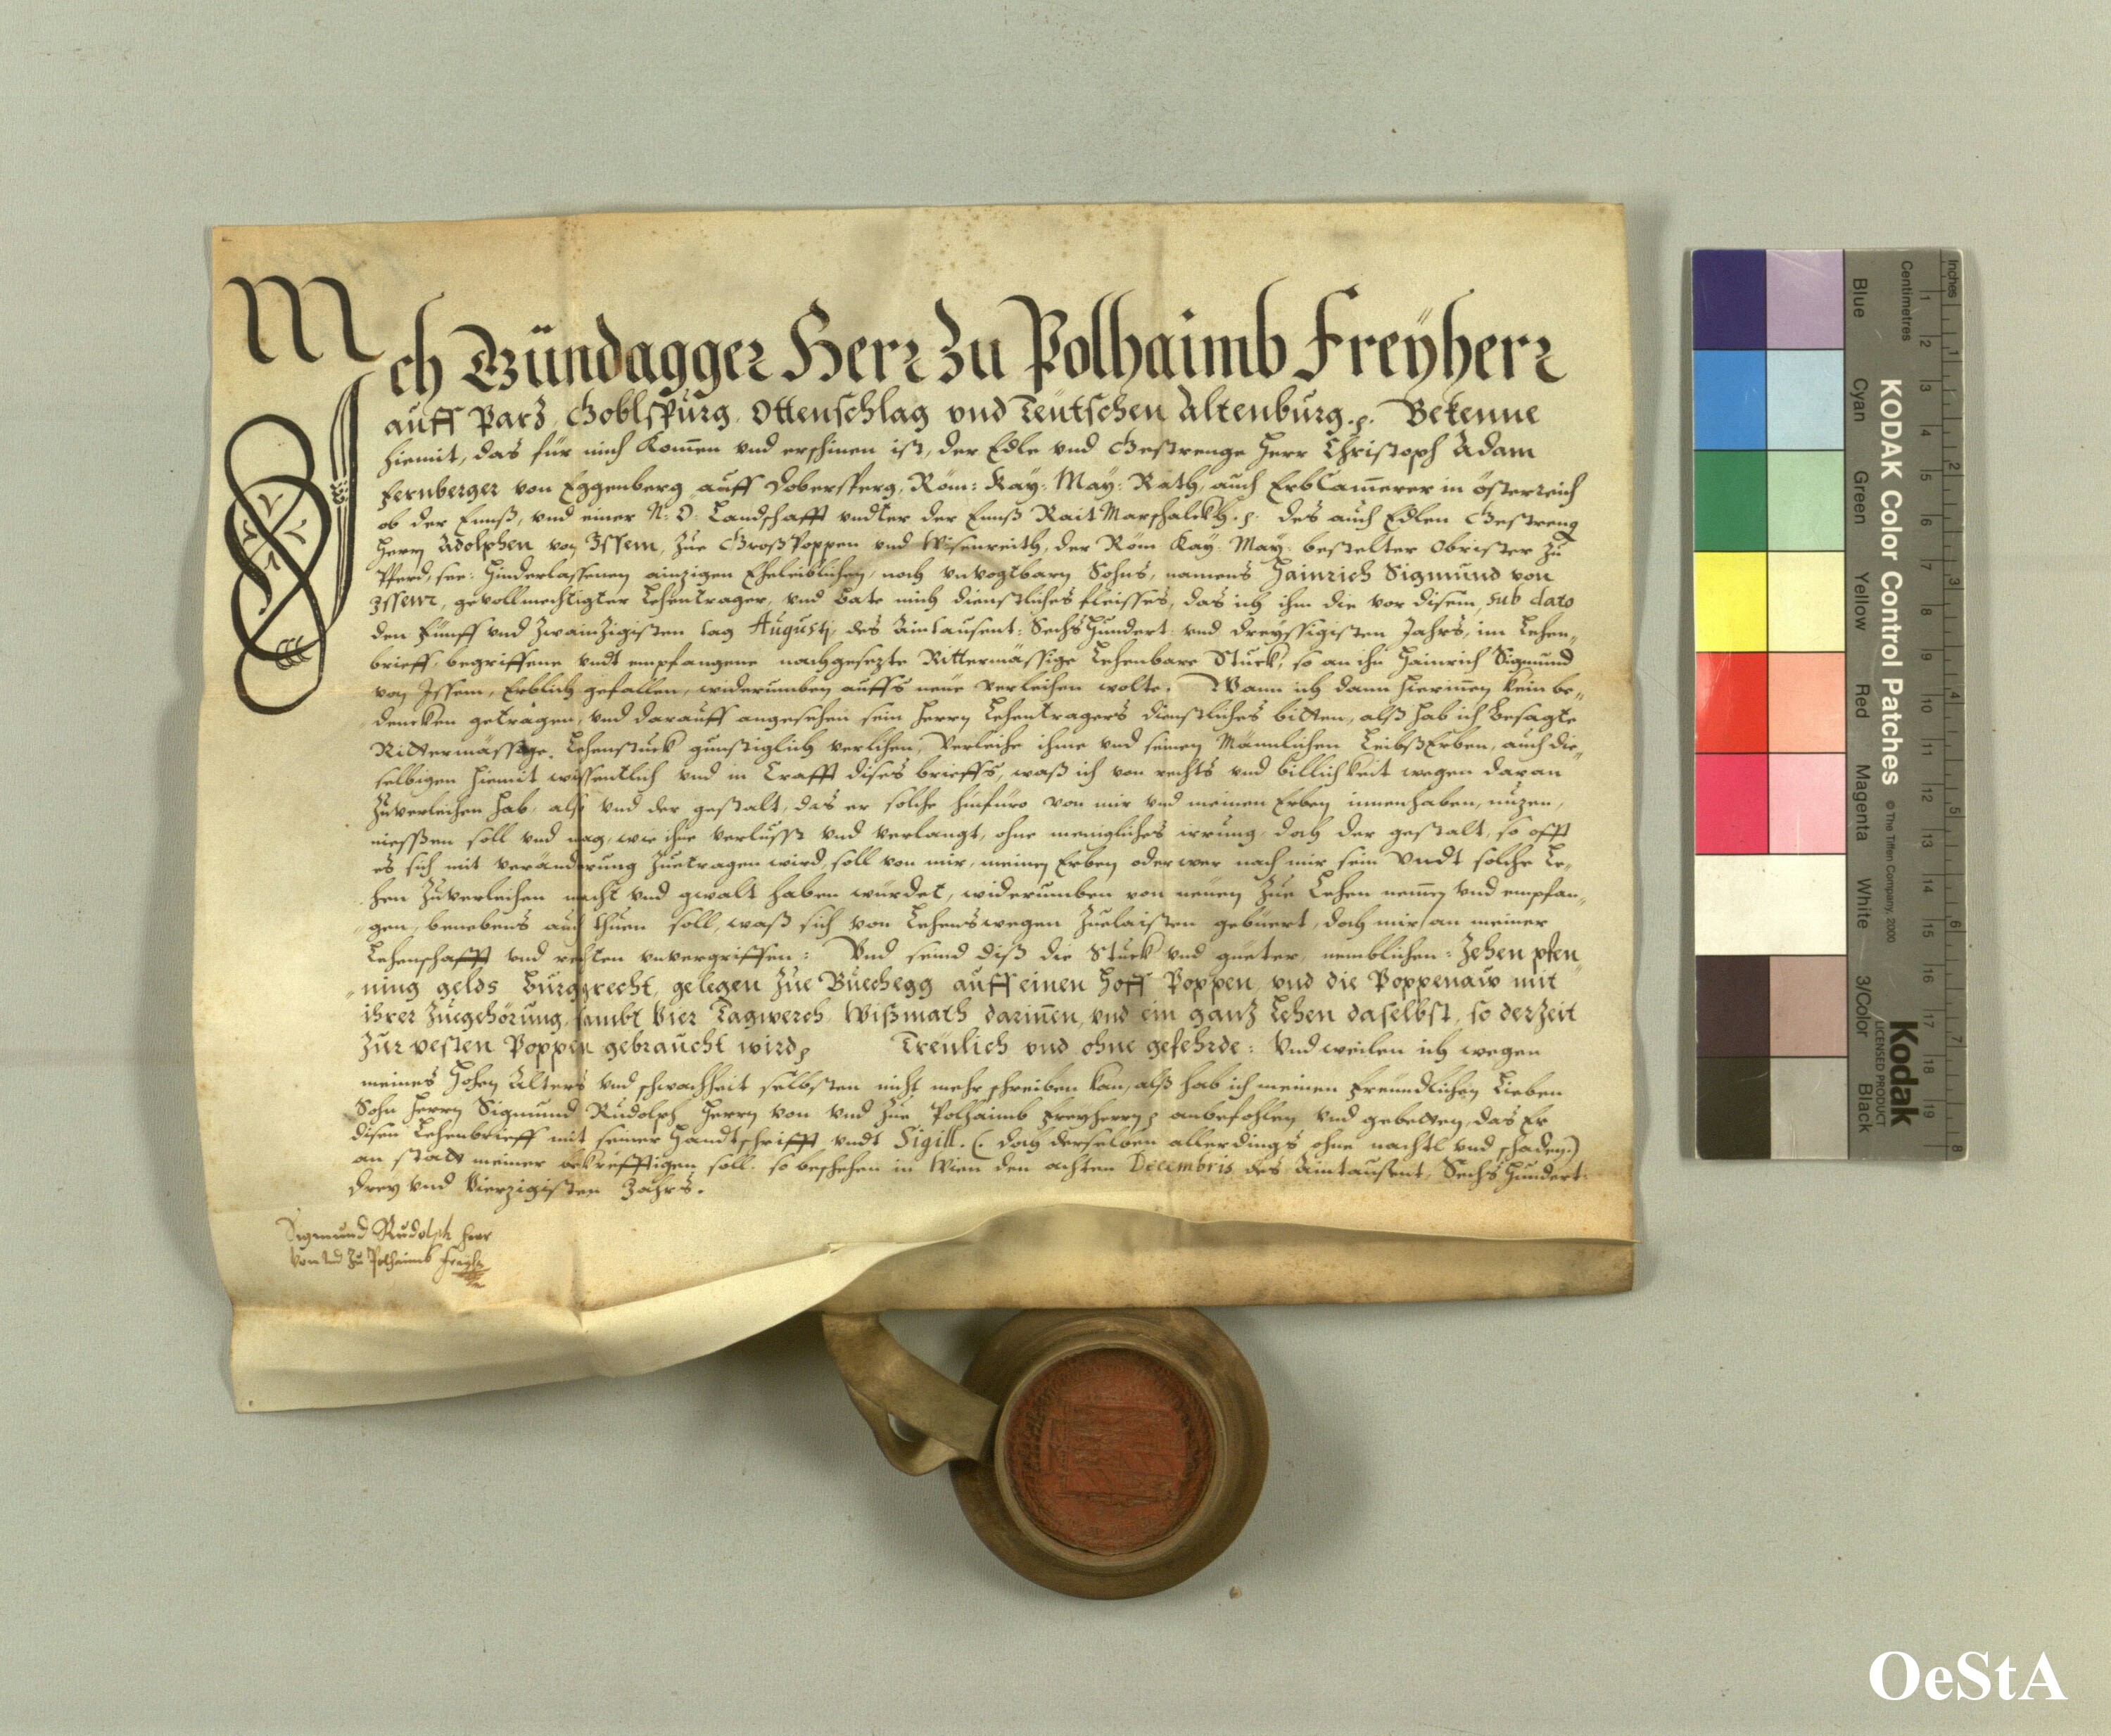 Ich Gündagger Herr Zu Polhaimb Freyherr
auff Parz, Goblspurg, Ottenschlag vnd Teutschen Altenburg .p. Bekenne
hiemit, das für mich Komen vnd erschinen ist, der Edle vnd Gestrenge Herr Christoph Adam
Fernberger von Eggenberg auff Dobersperg, Röm: Kay: May: Rath, auch ErbCamerer in össterreich
ob der Ennß, vnd einer N: Ö: Landschafft vndter der Ennß Rait Marschalckh .p. des auch Edlen Gestreng
Herrn Adolphen von Issem, zue GroßPoppen vnd Wisenreith, der Röm Kay: May: bestelter Obrister zu
Pferd, see: hinderlassenen ainzigen Eheleiblichen, noch vnvogtbarn Sohns, namens Hainrich Sigmund von
Issem, gevollmechtigter Lehentrager, vnd bate mich dienstliches fleisses, das ich ihm die vor disem, sub dato
den Fünff vnd Zwainzigisten tag Augustj, des Aintausent: SechsHundert: vnd dreyssigisten Jahrs, im Lehen„
brieff, begriffene vndt empfangene nachgesezte Rittermässige Lehenbare Stuck, so an ihn Hainrich Sigmund
von Issem, Erblich gefallen, widerumben auffs neue verleihen wolte. Wann ich dann hierinnen kein be„
dencken getragen, vnd darauff angesehen sein Herrn Lehentragers dienstliches bitten, alß hab ich besagte
Rittermässige Lehenstuck gunstiglich verlihen, Verleihe ihme vnd seinen Männlichen LeibßErben, auch die„
selbigen hiemit wissentlich vnd in Crafft dises brieffs, waß ich von rechts vnd billichkeit wegen daran
zuverleihen hab, also vnd der gestalt, das er solche hinfüro von mir vnd meinen Erben innenhaben, nuzen,
niessßen soll vnd mag, wie ihne verlusst vnd verlangt, ohne menigliches irrung, doch der gestalt, so offt
es sich mit veränderung zuetragen wird, soll von mir, meinen Erben oder wer nach mir sein vndt solche Le„
hen zuverleihen macht vnd gwalt haben würdet, widerumben von neuen zue Lehen nemen vnd empfan„
„gen, benebens auch thuen soll, waß sich von Lehens wegen zuelaisten gebüert, doch mir an meiner
Lehenschafft vnd rechten vnvergriffen: Vnd seind diß die Stuck vnd güeter, nemblichen: Zehen pfen„
„ning gelds Burggrecht, gelegen zue Buechegg auff einen Hoff Poppen, vnd die Poppenaw mit
ihrer zuegehörung, sambt Vier Tagwerch Wißmath darinnen, vnd ein ganz Lehen daselbst, so derzeit
zur vesten Poppen gebraucht wird, Treulich vnd ohne gefehrde: Vnd weilen ich wegen
meines hohen Alters vnd schwachheit selbsten nicht mehr schreiben kan, alß hab ich meinen freundlichen Lieben
Sohn Herrn Sigmund Rudolph Herrn von vnd zue Polhaimb Freyherrn p anbefohlen vnd gebetten, das Er
disen Lehenbrieff mit seiner Handtschrifft vndt Sigill. (: doch derselben allerdings ohne nachtl vnd schaden:)
an statt meiner bekrefftigen soll. so beschehen in Wien den achten Decembris des Aintausent, SechsHundert:
drey vnd Vierzigisten Jahrs.
Sigmund Rudolph Herr
von vnd zu Polhaimb Freyhr
Inches
Centimetres
KODAK Color Control Patches
© The Tiffen Company, 2000
Kodak
LICENSED PRODUCT
Blue
Cyan
Green
Yellow
Red
Magenta
White
3/Color
Black
1 2 3 4 5 6 7 8 9 10 11 12 13 14 15 16 17 18 19
1 2 3 4 5 6 7 8
OeStA